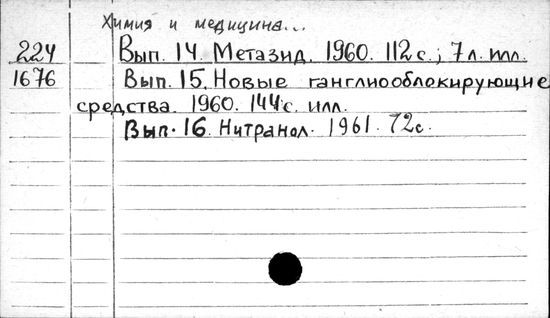 Химия и медицина...
224 Вып. 14. Метазид. 1960. 112 с.; 7 л. илл.
1676 Вып. 15. Новые ганглиоблокирующие
средства. 1960. 144 с. илл.
Вып. 16. Нитранол. 1961. 72 с.